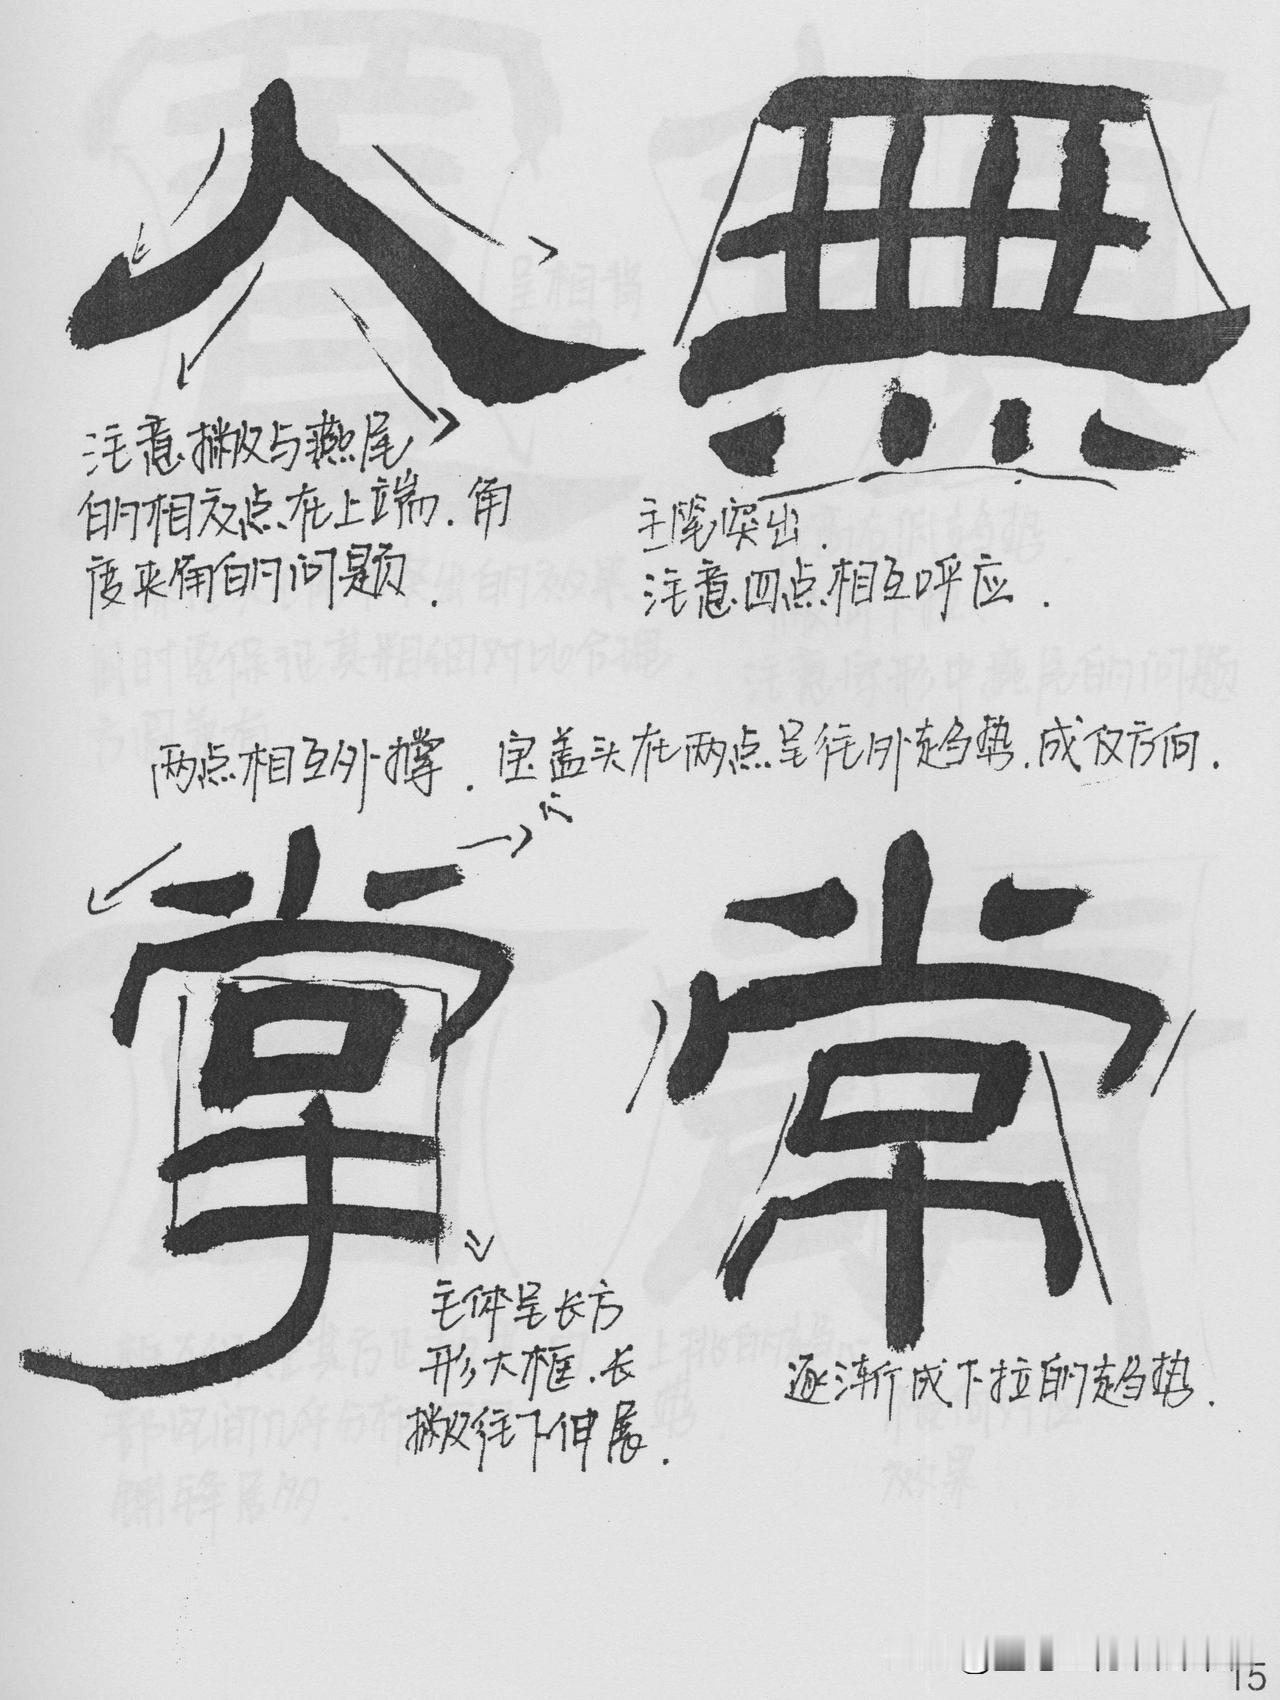 人 無
注意撇与燕尾
的相交点在上端.角
度来角的问题.
主笔突出.
注意四点相互呼应.
两点相互外撑.宝盖头在两点呈往外趋势.成仅方向.
掌 常
主体呈长方
形大框.长
撇往下伸展.
逐渐成下拉的趋势.
15